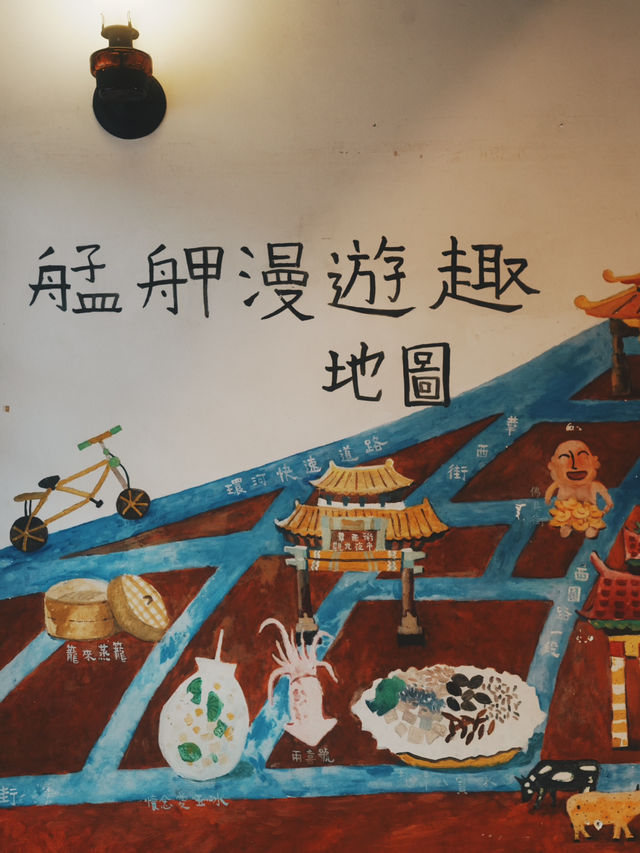 艋舺漫遊趣
地圖
環河快速道路
華西街
西園路一段
華西街
觀光夜市
籠來蒸籠
兩喜號
懷念愛玉冰